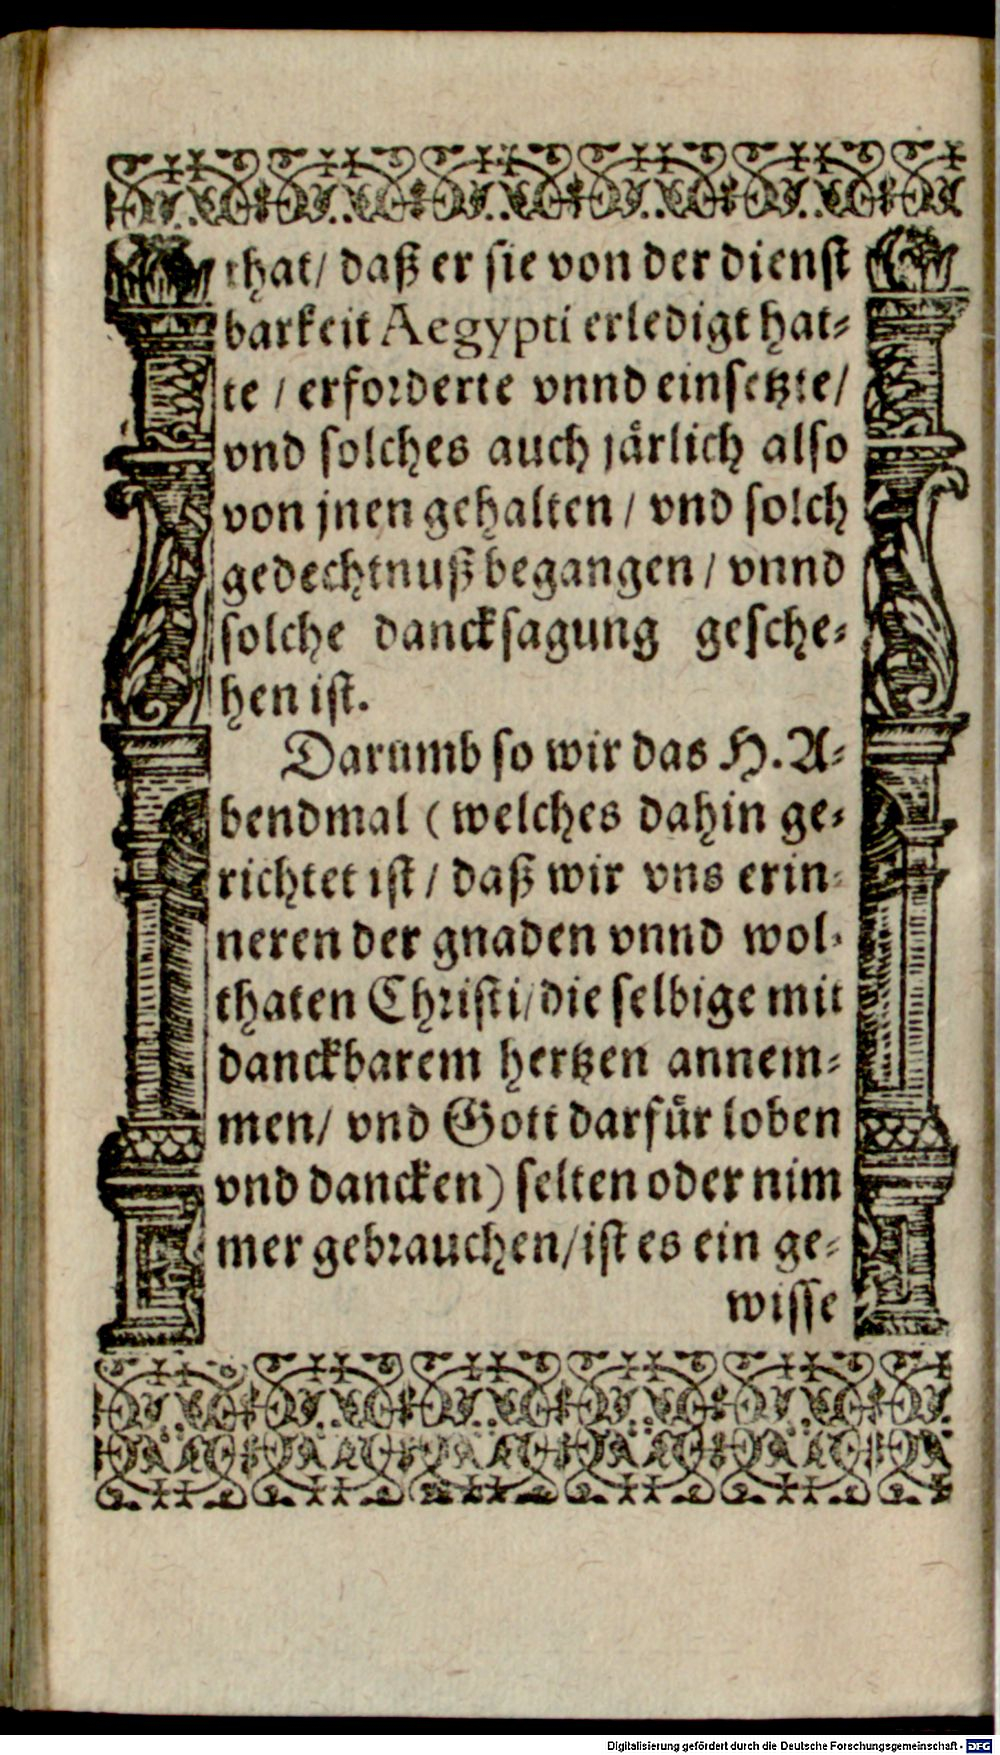 that/ daß er sie von der dienst
barkeit Aegypti erledigt hat-
te / erforderte vnnd einsetzte/
vnd solches auch järlich also
von jnen gehalten / vnd solch
gedechtnuß begangen / vnnd
solche dancksagung gesche-
hen ist.
Darumb so wir das H. A-
bendmal ( welches dahin ge-
richtet ist / daß wir vns erin-
neren der gnaden vnnd wol-
thaten Christi/die selbige mit
danckbarem hertzen annem-
men/ vnd Gott darfür loben
vnd dancken) selten oder nim
mer gebrauchen/ist es ein ge-
wisse
Digitalisierung gefördert durch die Deutsche Forschungsgemeinschaft - DFG